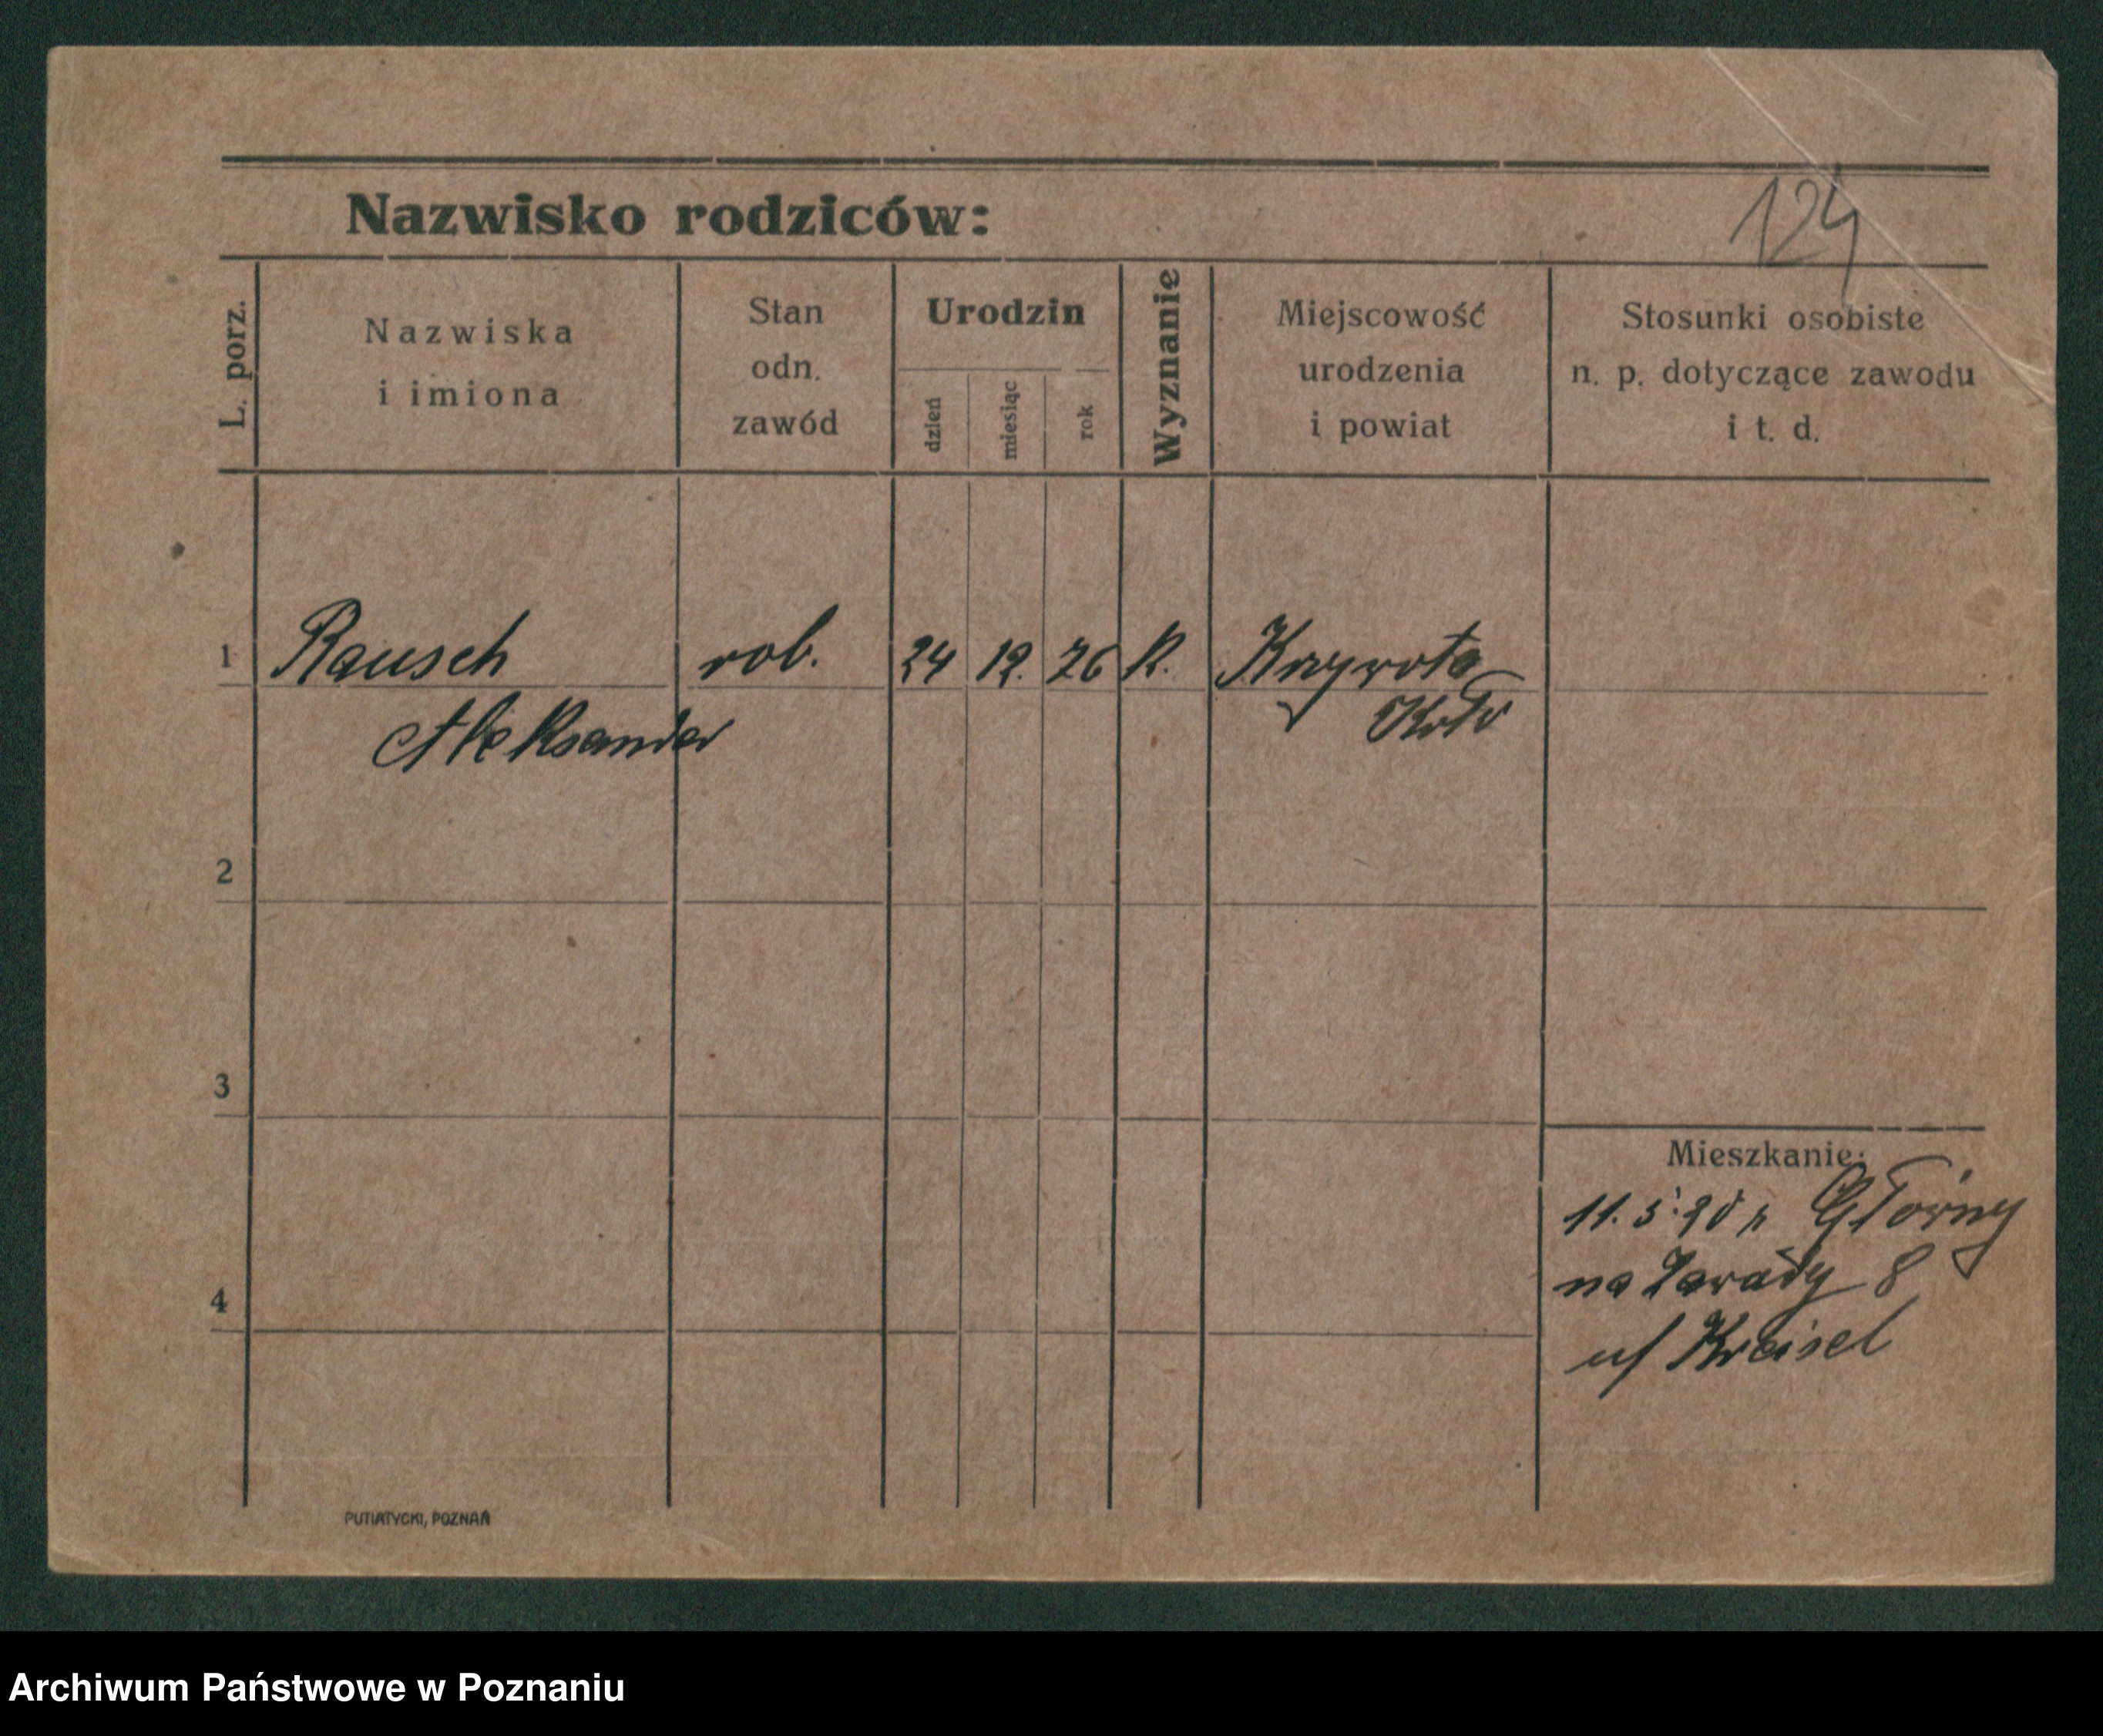 124
Nazwisko rodziców:
L. porz.
Nazwiska
i imiona
Stan
odn.
zawód
Urodzin
dzień
miesiąc
rok
Wyznanie
Miejscowość
urodzenia
i powiat
Stosunki osobiste
n. p. dotyczące zawodu
i t. d.
1 Rausch rob. 24 12. 76 K.
Aleksander Koło
2
3
Mieszkanie:
11. 5. Główny
na 8
4
u/ Kreisel
PUTIATYCKI, POZNAŃ
Archiwum Państwowe w Poznaniu